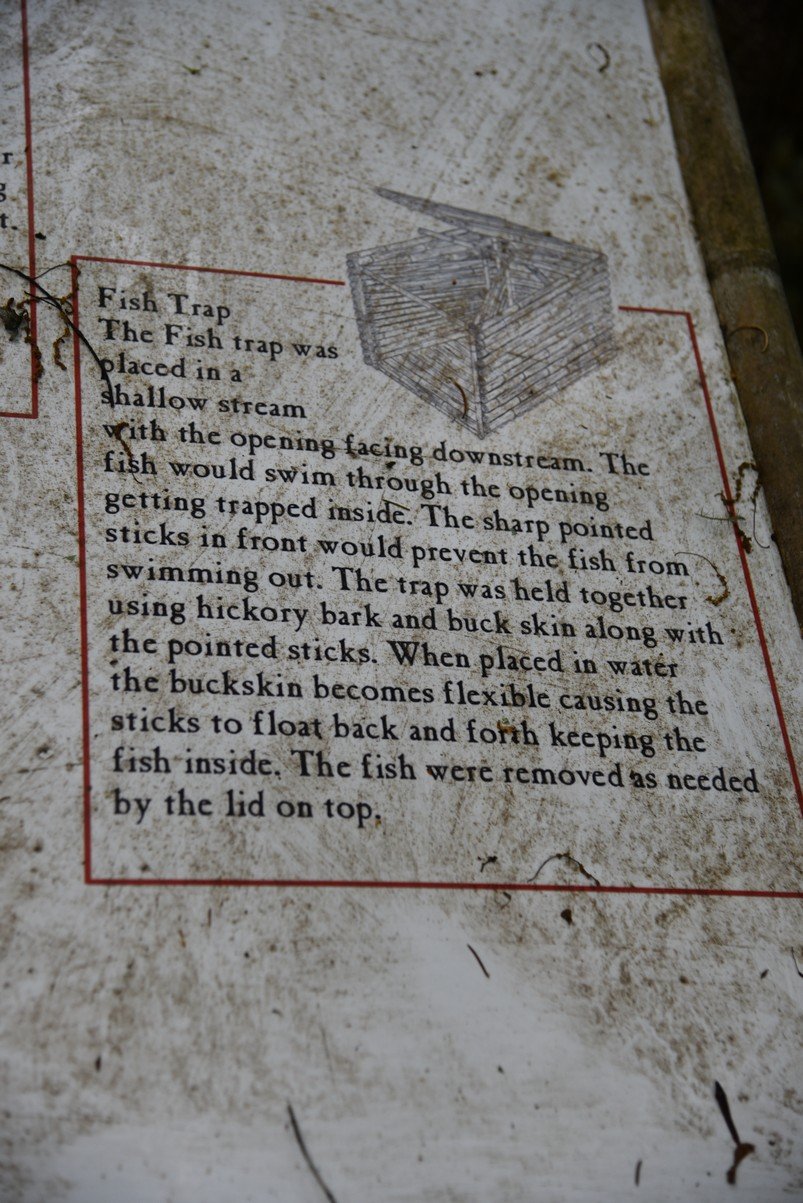 r
g
t.
Fish Trap
The Fish trap was
placed in a
shallow stream
with the opening facing downstream. The
fish would swim through the opening
getting trapped inside. The sharp pointed
sticks in front would prevent the fish from
swimming out. The trap was held together
using hickory bark and buck skin along with
the pointed sticks. When placed in water
the buckskin becomes flexible causing the
sticks to float back and forth keeping the
fish inside. The fish were removed as needed
by the lid on top.